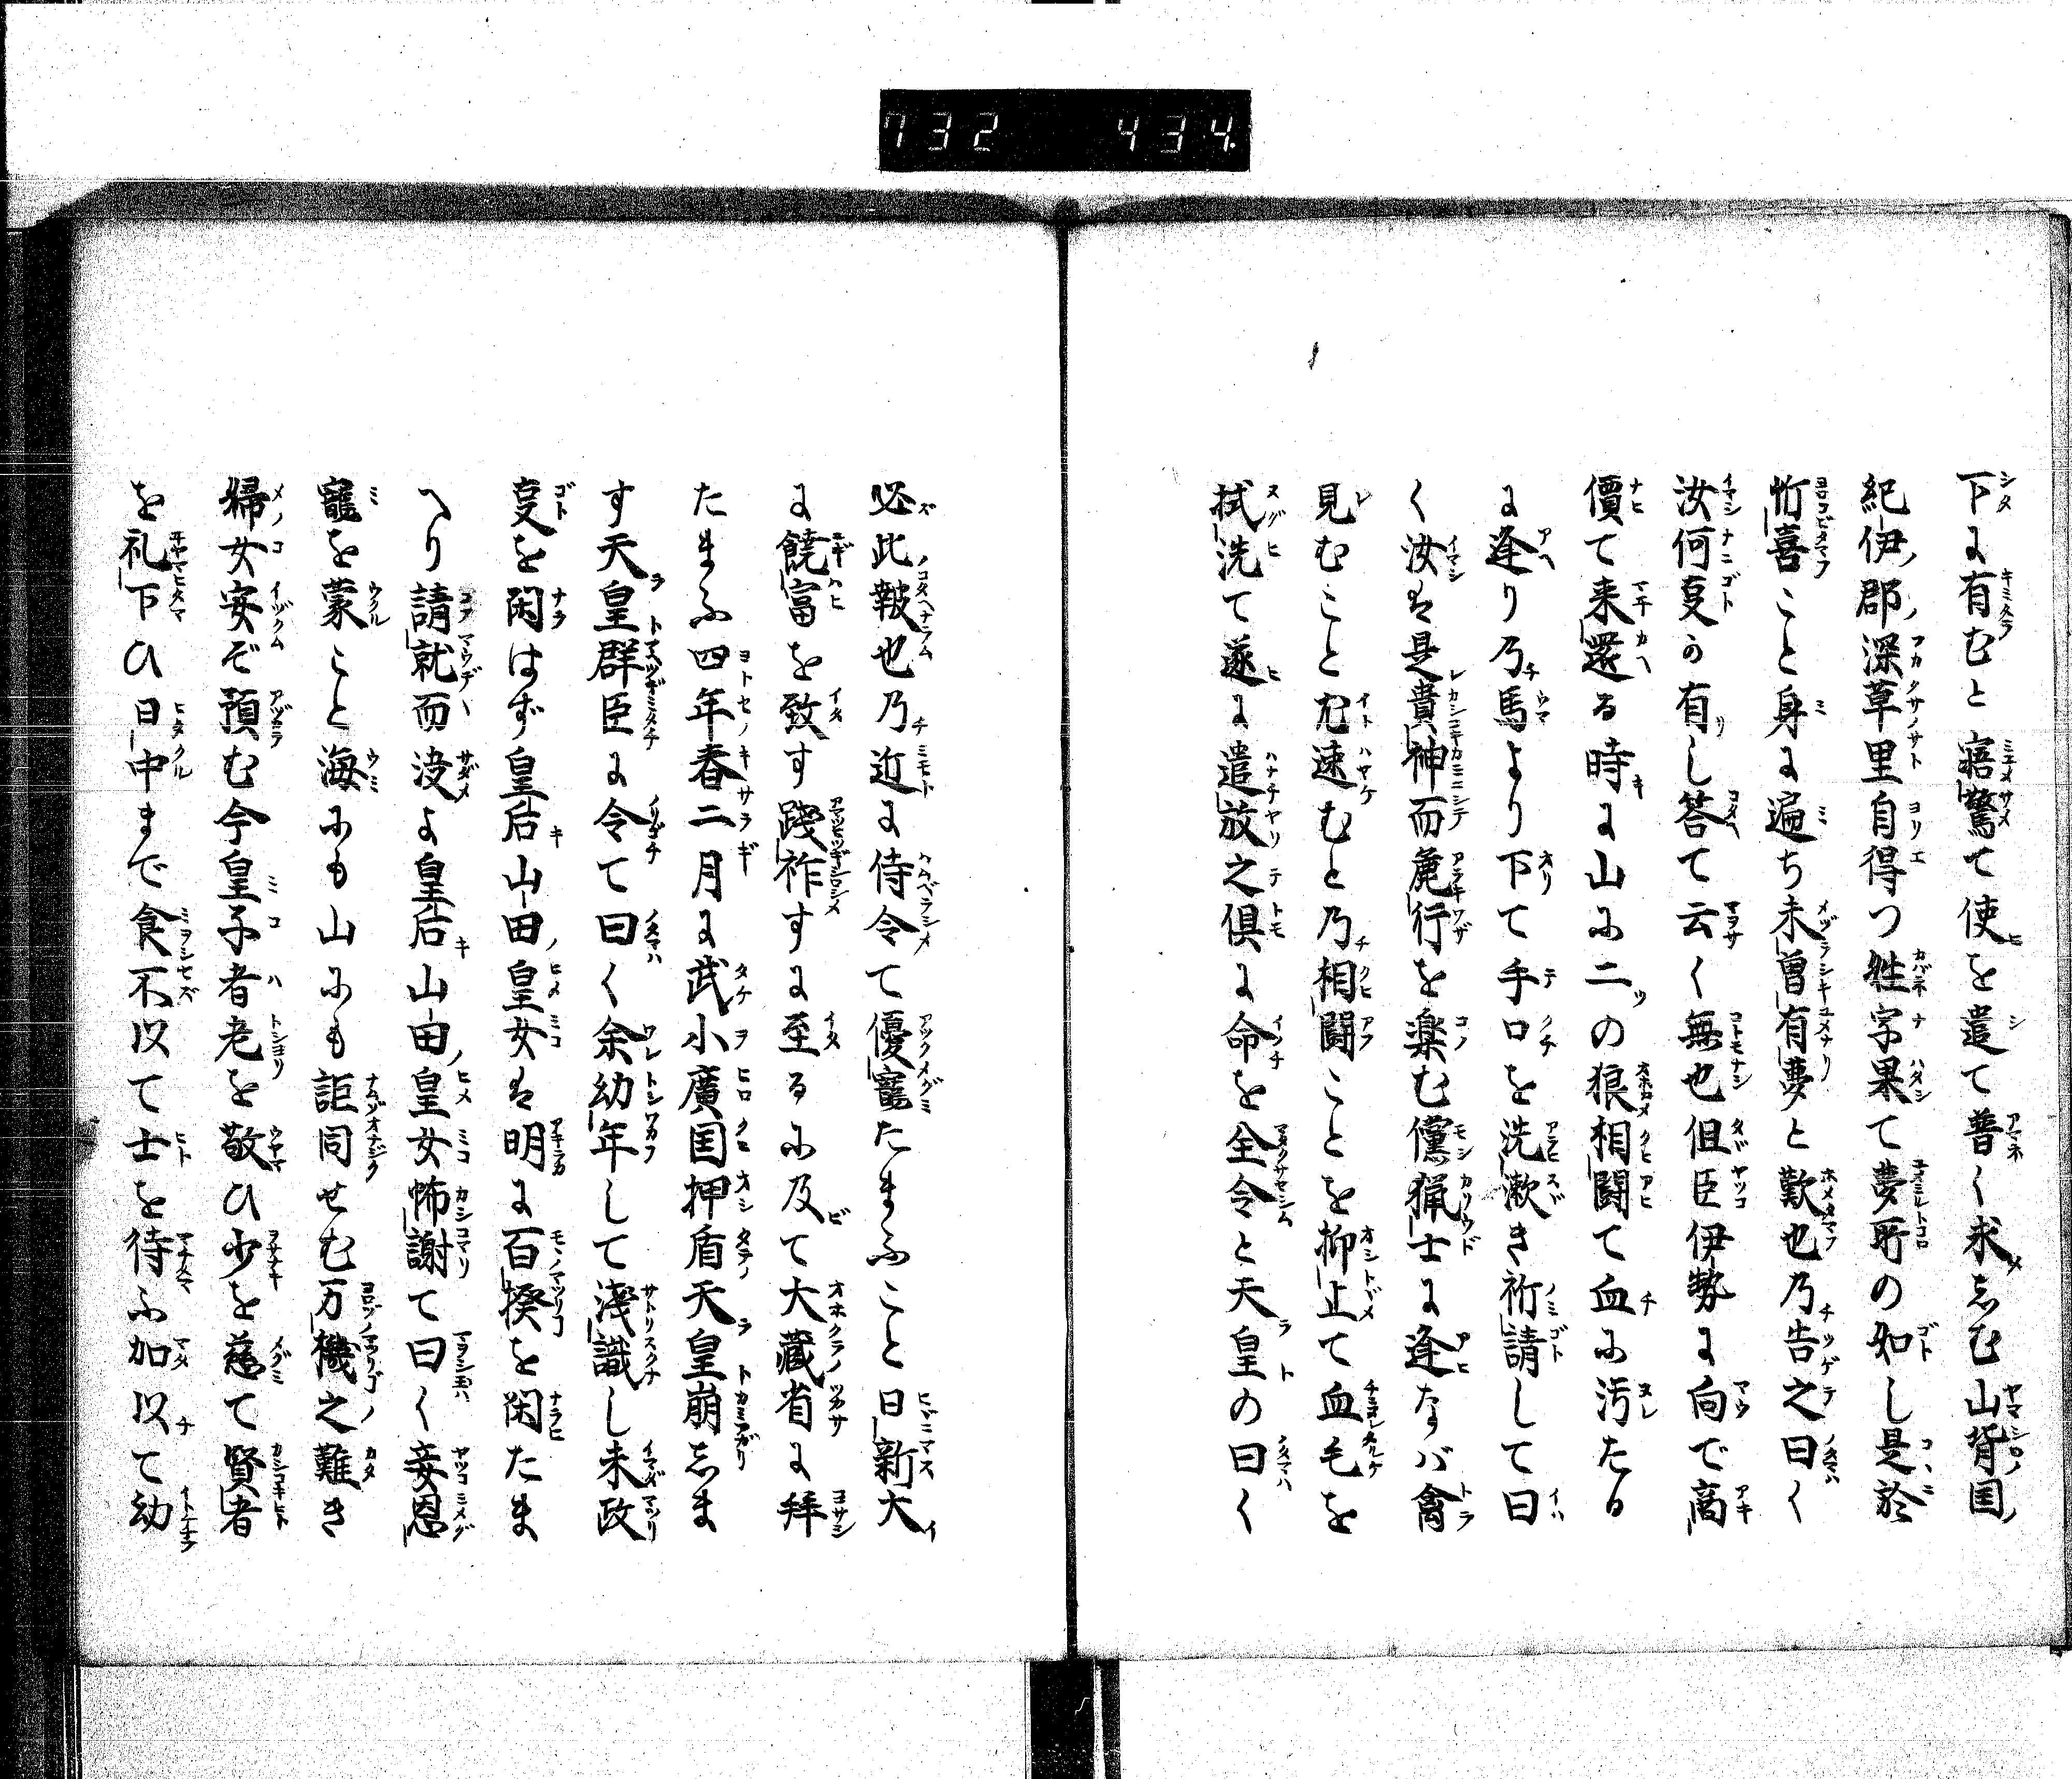 732 434
下に有むと寤驚て使を遣て普く求しむ山背国
紀伊郡深草里自得つ姓字果て夢所の如し是於
忻喜こと身に遍ち未曽有夢と歎也乃告之曰く
汝何事か有し答て云く無也但臣伊勢に向で商
價て来還る時に山に二の狼相闘て血に汚たる
に逢り乃馬より下て手口を洗漱き祈請して曰
く汝は是貴神而麁行を楽む儻猟士に逢なば禽
見むこと尤速むと乃相闘ことを抑止て血毛を
拭洗て遂に遣放之倶に命を全令と天皇の曰く
必此報也乃近に侍令て優寵たまふこと日新大
に饒富を致す践祚すに至るに及て大蔵省に拝
たまふ四年春二月に武小廣国押盾天皇崩しま
す天皇群臣に令て曰く余幼年して浅識し未政
事を閑はず皇后山田皇女は明に百揆を閑たま
へり請就而没よ皇后山田皇女怖謝て曰く妾恩
寵を蒙こと海にも山にも詎同せむ万機之難き
婦女安ぞ預む今皇子者老を敬ひ少を慈て賢者
を礼下ひ日中まで食不以て士を待ふ加以て幼